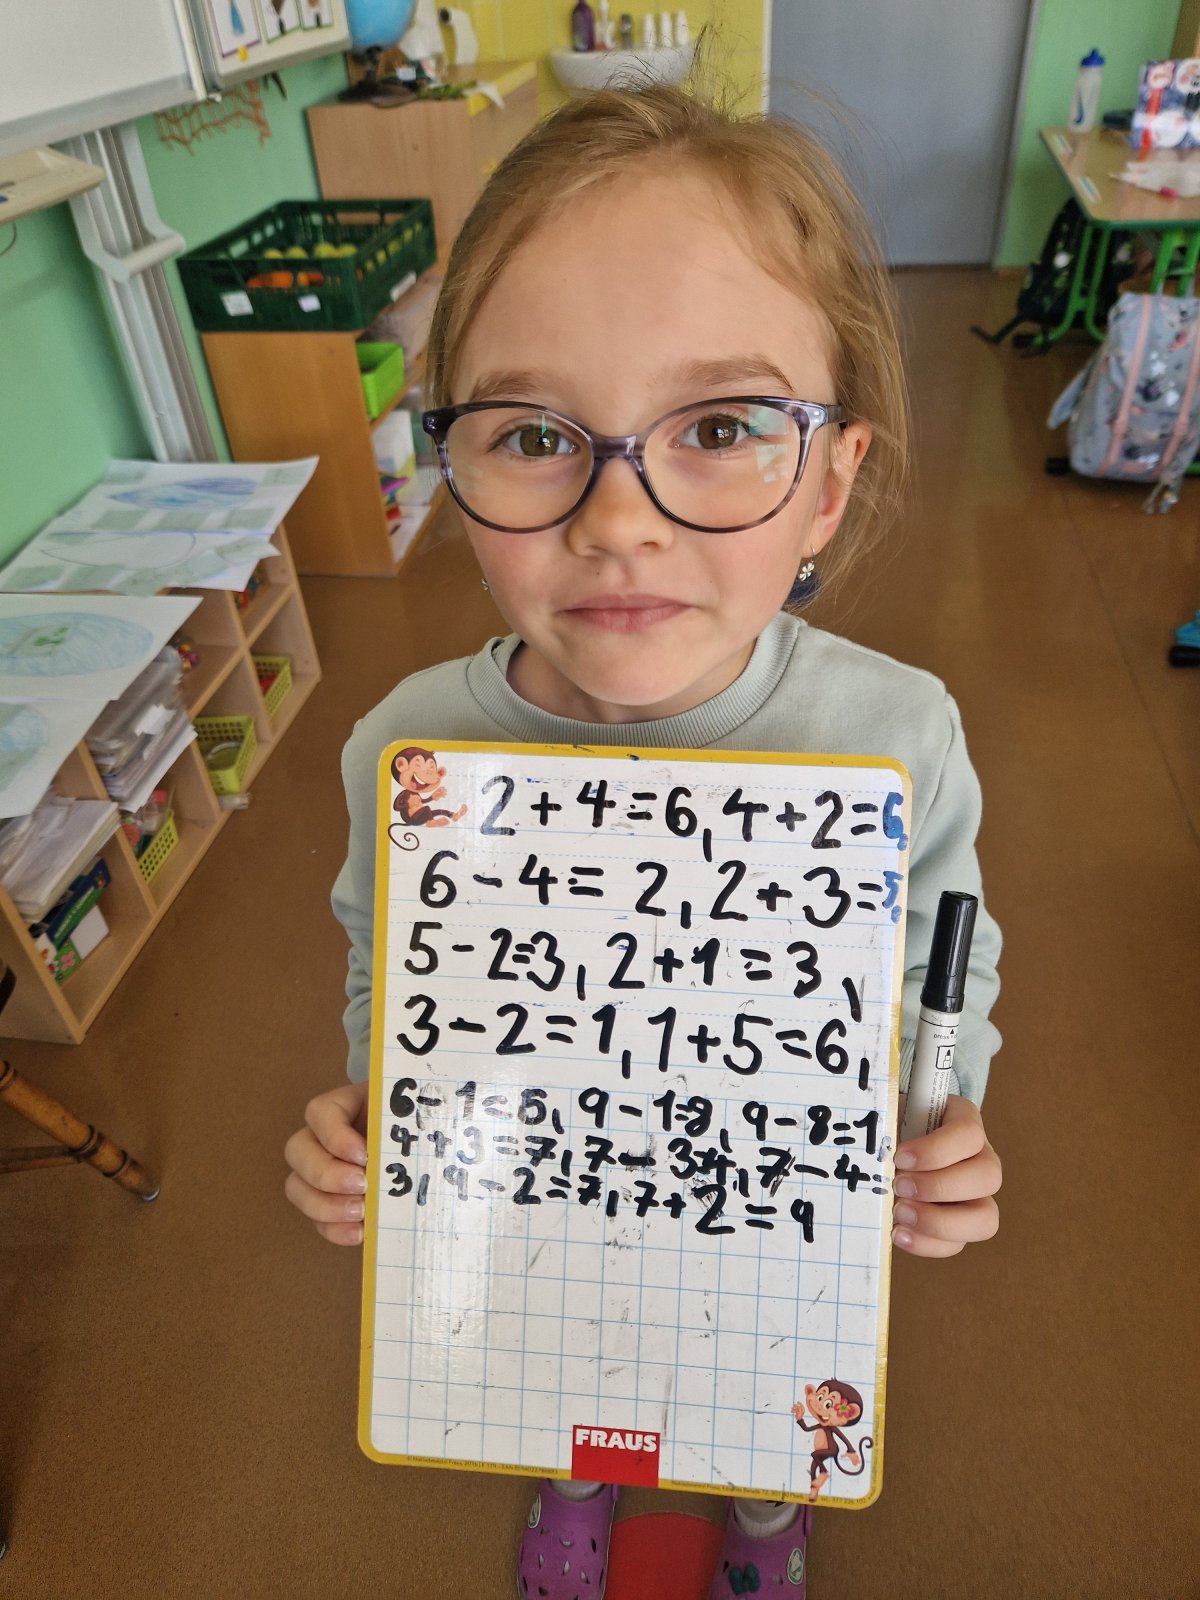 2+4=6,4+2=6,
6-4=2,2+3=5,
5-2=3,2+1=3,
3-2=1,1+5=6,
6-1=5,9-1=8,9-8=1,
4+3=7,7-3=4,7-4=
3,9-2=7,7+2=9
FRAUS